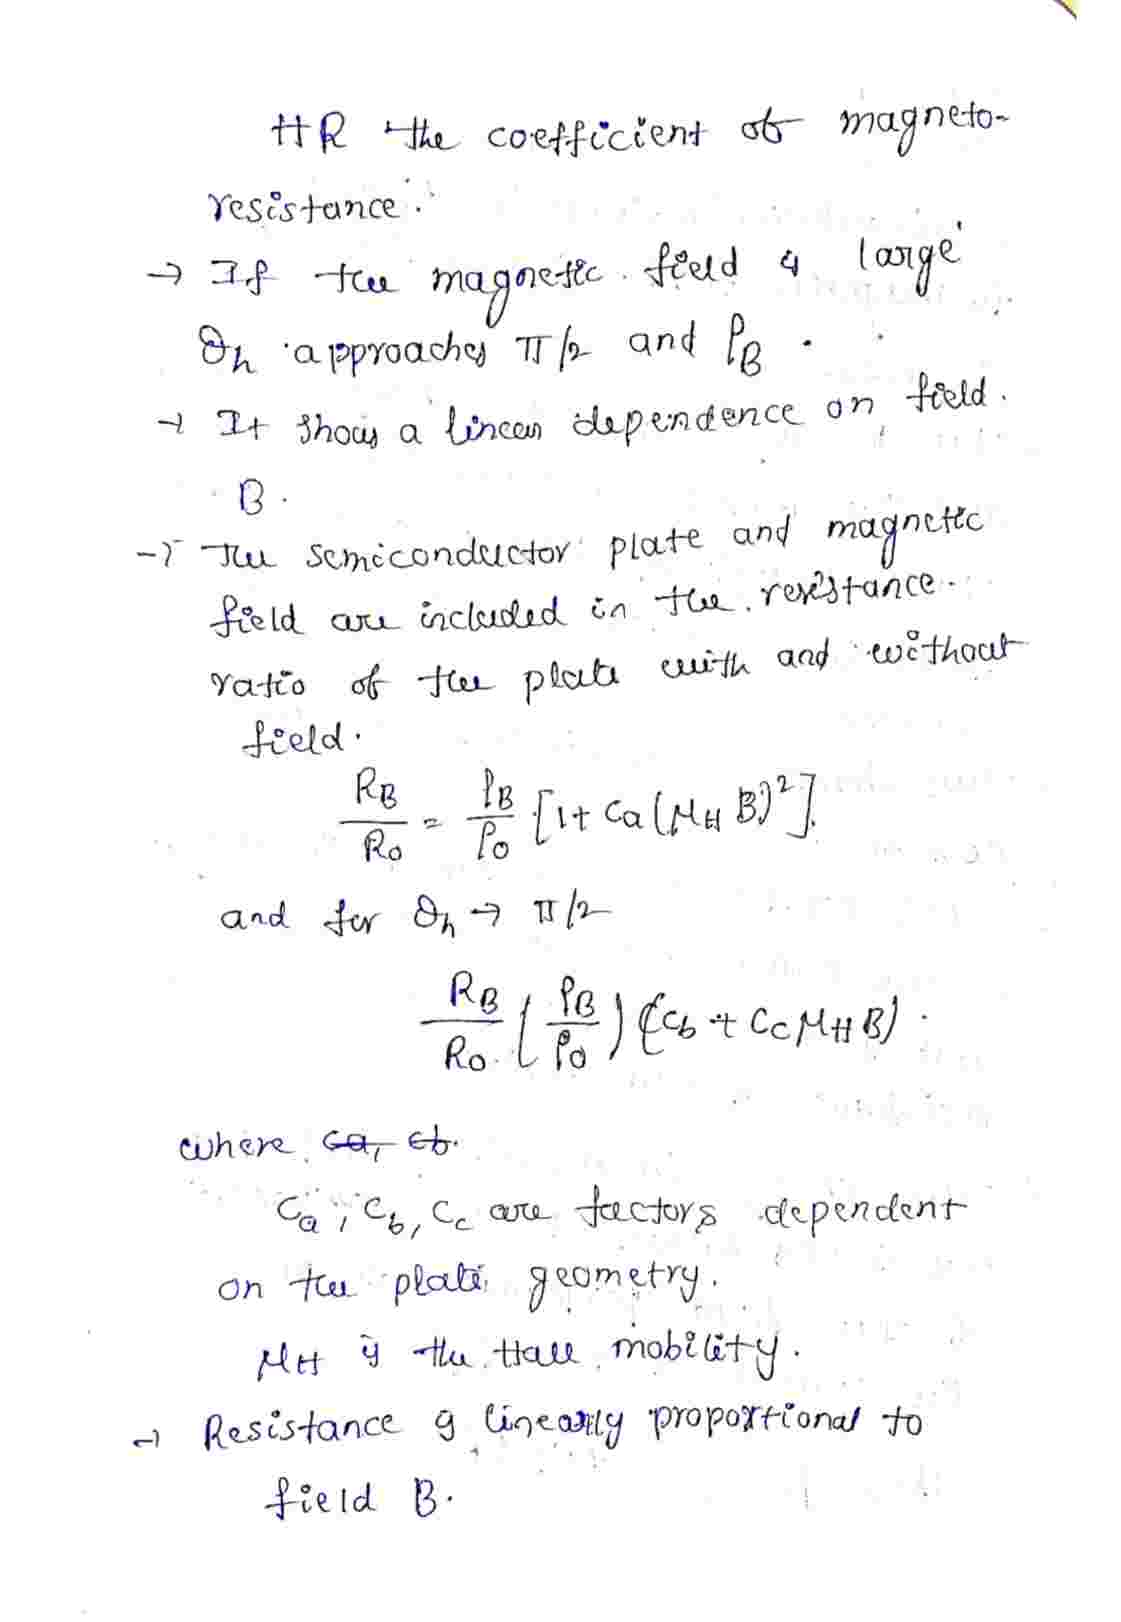 HR the coefficient of magneto-
resistance.
→ If the magnetic field is large
θh approaches π/2 and ρB .
→ It shows a linear dependence on field.
B.
→ The semiconductor plate and magnetic
field are included in the resistance
ratio of the plate with and without
field.
RB/R0 = ρB/ρ0 [1+ Ca (μH B)²].
and for θh → π/2
RB/R0 (ρB/ρ0) (Cb + Cc μH B) .
where ca, cb.
Ca, Cb, Cc are factors dependent
on the plate geometry.
μH is the Hall mobility.
→ Resistance is linearly proportional to
field B.